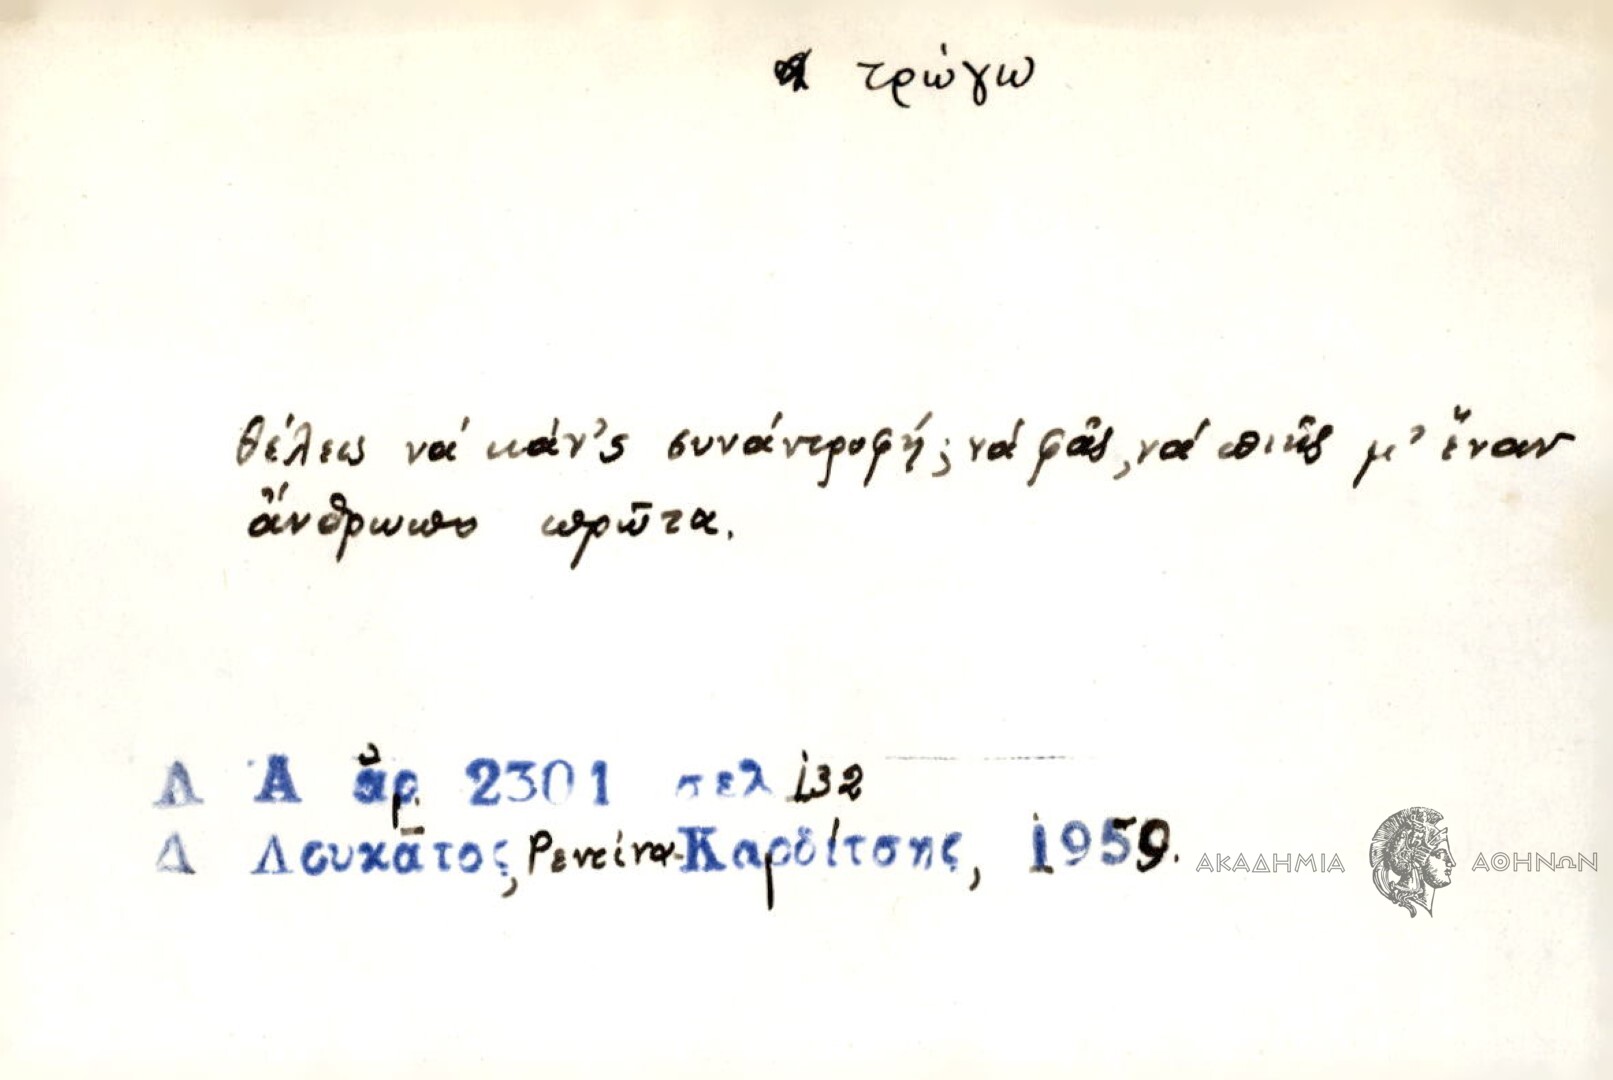 τρώγω
θέλεις νά κάν'ς συνάντροφή; νά φᾶς, νά πιῆς μ' ἕναν
ἄνθρωπο πρῶτα.
Λ Α ἀρ. 2301 σελ 132
Δ Λουκᾶτος, Ρεντίνα-Καρδίτσης, 1959.
ΑΚΑΔΗΜΙΑ ΑΘΗΝΩΝ